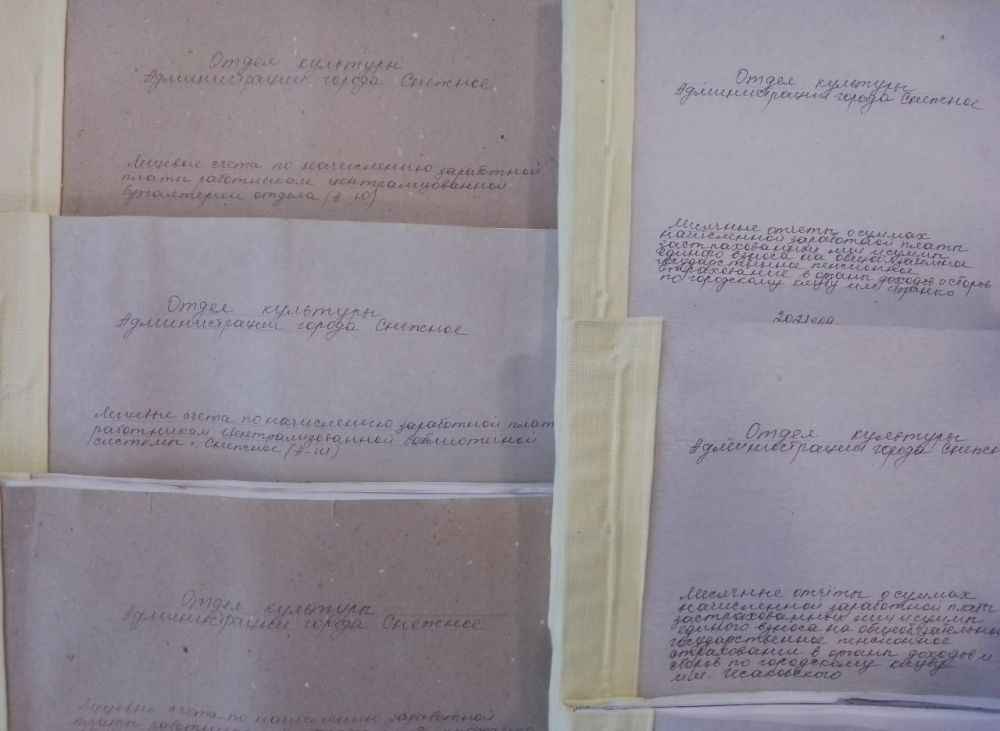 Отдел культуры
Администрации города Снежное
Лицевые счета по начислению заработной
платы работникам централизованной
бухгалтерии отдела (А-Ю)
Отдел культуры
Администрации города Снежное
Лицевые счета по начислению заработной плат
работникам Централизованной библиотечной
системы г. Снежное (А-Ш)
Отдел культуры
Администрации города Снежное
Лицевые счета по начислению заработной
платы
Отдел культуры
Администрации города Снежное
Месячные отчеты о суммах
начисленной заработной платы
застрахованных лиц и суммы
единого взноса на общеобязательное
государственное пенсионное
страхование в органы доходов и сборов
по городскому клубу им. Франко
2021 год
Отдел культуры
Администрации города Снежн
Месячные отчёты о суммах
начисленной заработной платы
застрахованных лиц и сумм
единого взноса на общеобязательно
государственное пенсионное
страхование в органы доходов и
сборов по городскому клубу
им. Исаковского